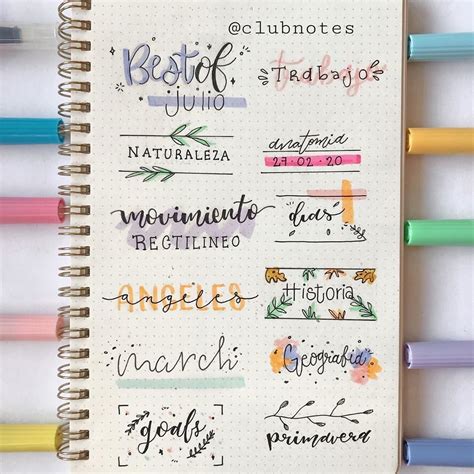 @clubnotes
Best of
julio
Trabajo
trabajo
NATURALEZA
anatomia
27-02-20
movimiento
RECTILINEO
dias
ANGELES
angeles
Historia
march
Geografia
goals
primavera